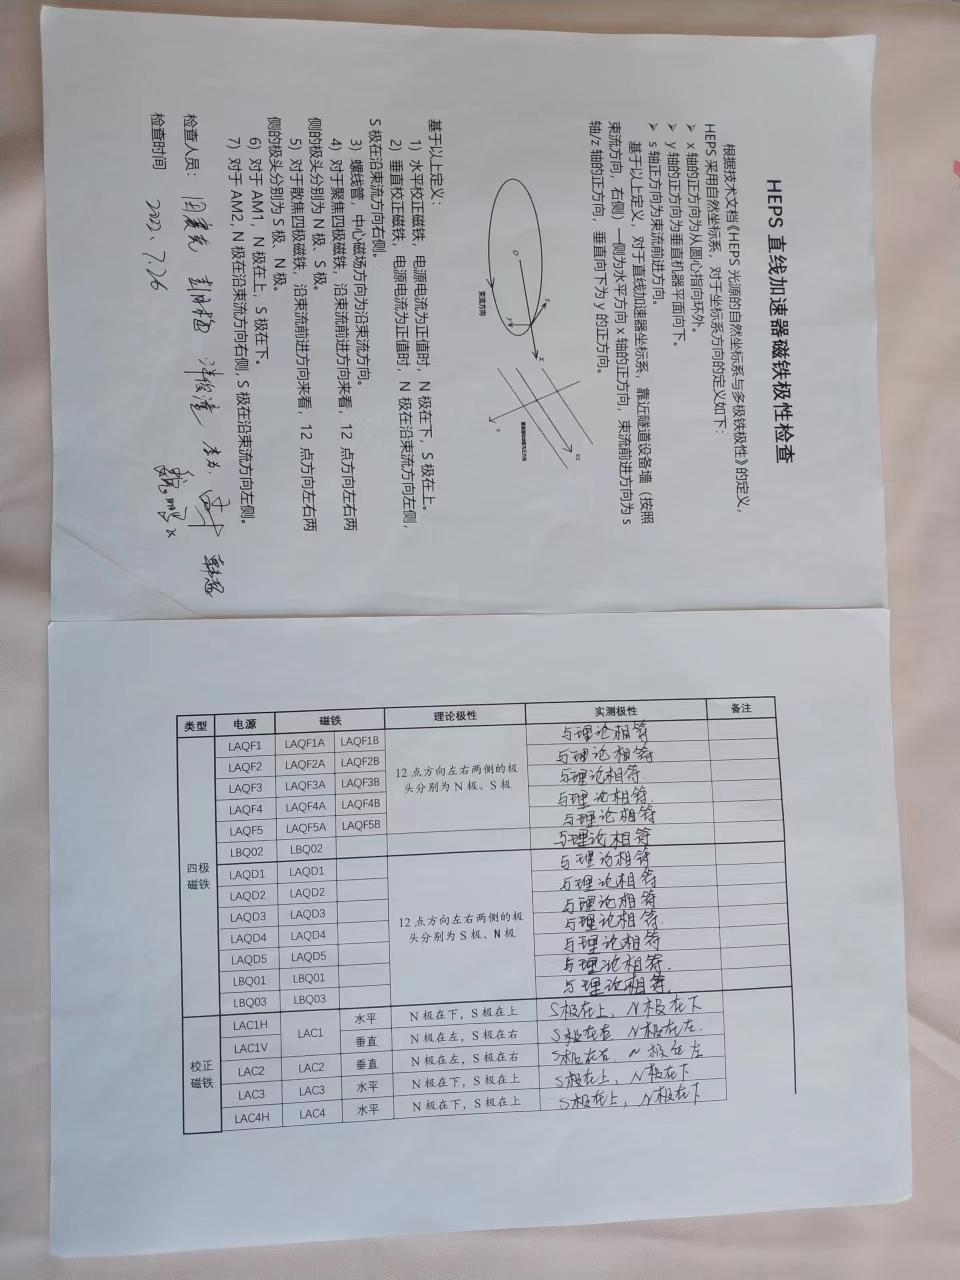 HEPS 直线加速器磁铁极性检查
根据技术文档《HEPS 光源的自然坐标系与多极铁极性》的定义,
HEPS 采用自然坐标系, 对于坐标系方向的定义如下:
➢ x 轴的正方向为从圆心指向环外。
➢ y 轴的正方向为垂直机器平面向下。
➢ s 轴正方向为束流前进方向。
基于以上定义, 对于直线加速器坐标系, 靠近隧道设备墙 (按照
束流方向, 右侧) 一侧为水平方向 x 轴的正方向, 束流前进方向为 s
轴/z 轴的正方向, 垂直向下为 y 的正方向。
O
s
y
x
束流方向
s/z
x
基于以上定义:
1) 水平校正磁铁, 电源电流为正值时, N 极在下, S 极在上。
2) 垂直校正磁铁, 电源电流为正值时, N 极在沿束流方向左侧,
S 极在沿束流方向右侧。
3) 螺线管, 中心磁场方向为沿束流方向。
4) 对于聚焦四极磁铁, 沿束流前进方向来看, 12 点方向左右两
侧的极头分别为 N 极、S 极。
5) 对于散焦四极磁铁, 沿束流前进方向来看, 12 点方向左右两
侧的极头分别为 S 极、N 极。
6) 对于 AM1, N 极在上, S 极在下。
7) 对于 AM2, N 极在沿束流方向右侧, S 极在沿束流方向左侧。
检查人员:
检查时间 2022.7.26
类型 电源 磁铁 理论极性 实测极性 备注
四极磁铁 LAQF1 LAQF1A LAQF1B 12 点方向左右两侧的极头分别为 N 极、S 极 与理论相符
LAQF2 LAQF2A LAQF2B 与理论相符
LAQF3 LAQF3A LAQF3B 与理论相符.
LAQF4 LAQF4A LAQF4B 与理论相符.
LAQF5 LAQF5A LAQF5B 与理论相符
LBQ02 LBQ02 与理论相符
LAQD1 LAQD1 12 点方向左右两侧的极头分别为 S 极、N 极 与理论相符
LAQD2 LAQD2 与理论相符
LAQD3 LAQD3 与理论相符
LAQD4 LAQD4 与理论相符.
LAQD5 LAQD5 与理论相符
LBQ01 LBQ01 与理论相符.
LBQ03 LBQ03 与理论相符.
校正磁铁 LAC1H LAC1 水平 N 极在下, S 极在上 S极在上, N极在下
LAC1V 垂直 N 极在左, S 极在右 S极在右 N极在左.
LAC2 LAC2 垂直 N 极在左, S 极在右 S极在右 N极在左
LAC3 LAC3 水平 N 极在下, S 极在上 S极在上, N极在下
LAC4H LAC4 水平 N 极在下, S 极在上 S极在上, N极在下